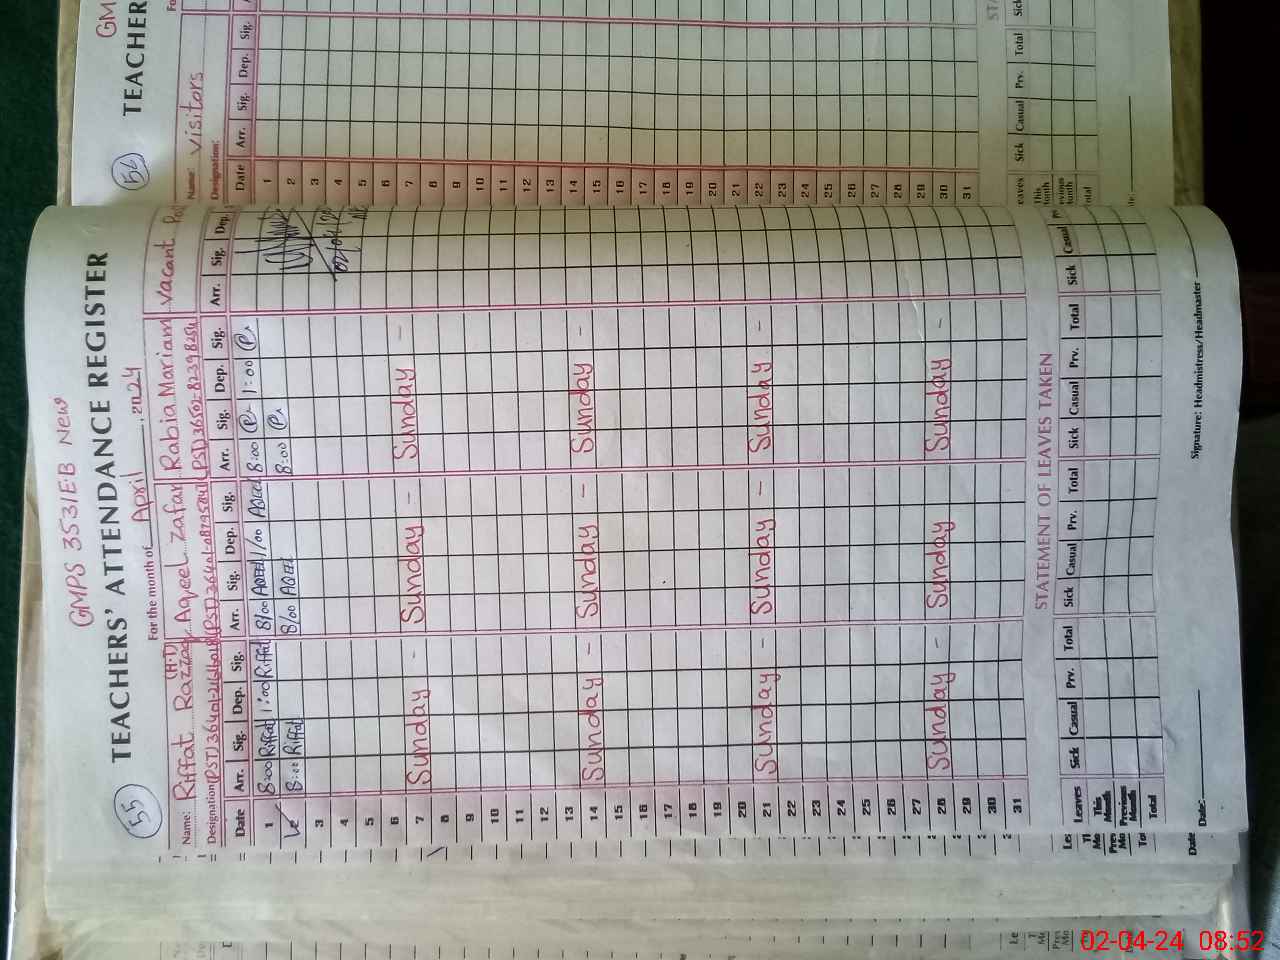 55
GMPS 353/EB New
TEACHERS' ATTENDANCE REGISTER
For the month of April, 2024
Name: Riffat Razzaq (H.T) Aqeel Zafar Rabia Mariam Vacant
Designation (PST) (PST) (PST)
Date Arr. Sig. Dep. Sig. Arr. Sig. Dep. Sig. Arr. Sig. Dep. Sig. Arr. Sig. Dep.
1 8:00 Riffat 1:00 Riffat 8/00 AQEEL 1/00 AQEEL 8:00 1:00
2 8:00 Riffat 8/00 AQEEL 8:00
3
4
5
6
7 Sunday - Sunday - Sunday -
8
9
10
11
12
13
14 Sunday - Sunday - Sunday -
15
16
17
18
19
20
21 Sunday - Sunday - Sunday -
22
23
24
25
26
27
28 Sunday - Sunday - Sunday -
29
30
31
STATEMENT OF LEAVES TAKEN
Leaves Sick Casual Prv. Total Sick Casual Prv. Total Sick Casual Prv. Total Sick Casual
This Month
Previous Month
Total
Date: Signature: Headmistress/Headmaster
56
GM
TEACHER
Name: Visitors
Designation:
Date Arr. Sig. Dep. Sig.
1
2
3
4
5
6
7
8
9
10
11
12
13
14
15
16
17
18
19
20
21
22
23
24
25
26
27
28
29
30
31
Sick Casual Prv. Total Sick
Total
02-04-24 08:52